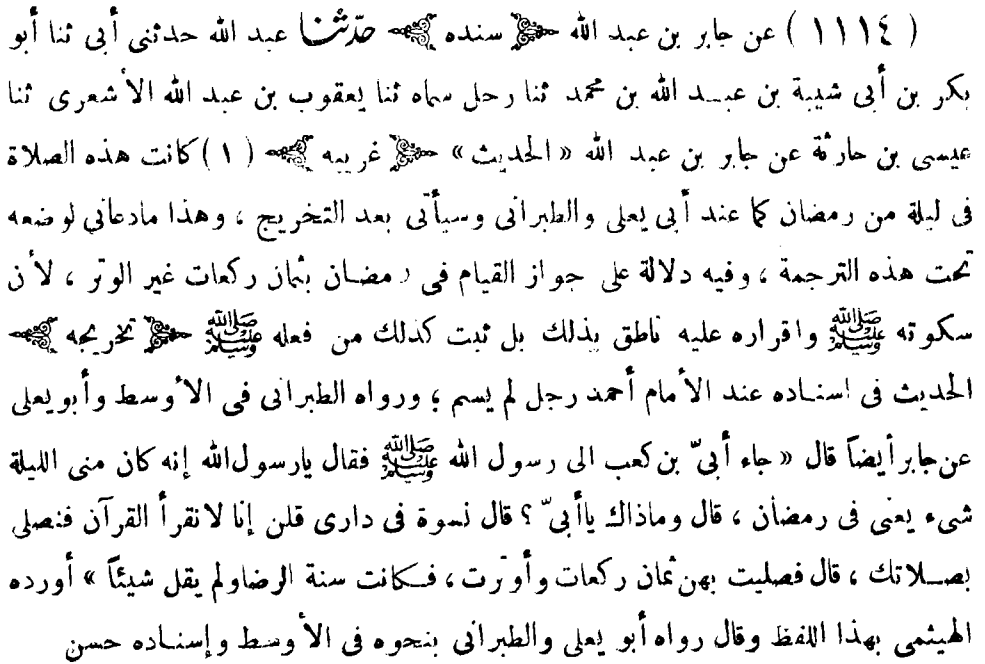 ( ١١١٤ ) عن جابر بن عبد الله ﴿ سنده ﴾ حدّثنا عبد الله حدثنى أبى ثنا أبو
بكر بن أبى شيبة بن عبد الله بن محمد ثنا رحل سماه ثنا يعقوب بن عبد الله الأشعرى ثنا
عيسى بن حارثة عن جابر بن عبد الله « الحديث » ﴿ غريبه ﴾ ( ١ ) كانت هذه الصلاة
فى ليلة من رمضان كما عند أبى يعلى والطبرانى وسيأتى بعد التخريج ، وهذا مادعانى لوضعه
تحت هذه الترجمة ، وفيه دلالة على جواز القيام فى رمضان بثمان ركعات غير الوتر ، لأن
سكوته ﷺ واقراره عليه ناطق بذلك بل ثبت كذلك من فعله ﷺ ﴿ تخريجه ﴾
الحديث فى اسناده عند الأمام أحمد رجل لم يسم ؛ ورواه الطبرانى فى الأوسط وأبويعلى
عن جابر أيضاً قال « جاء أبىّ بن كعب الى رسول الله ﷺ فقال يارسول الله إنه كان منى الليلة
شىء يعنى فى رمضان ، قال وماذاك ياأبىّ ؟ قال نسوة فى دارى قلن إنا لانقرأ القرآن فنصلى
بصلاتك ، قال فصليت بهن ثمان ركعات وأوترت ، فكانت سنة الرضاولم يقل شيئاً » أورده
الهيثمى بهذا اللفظ وقال رواه أبو يعلى والطبرانى بنحوه فى الأوسط وإسناده حسن